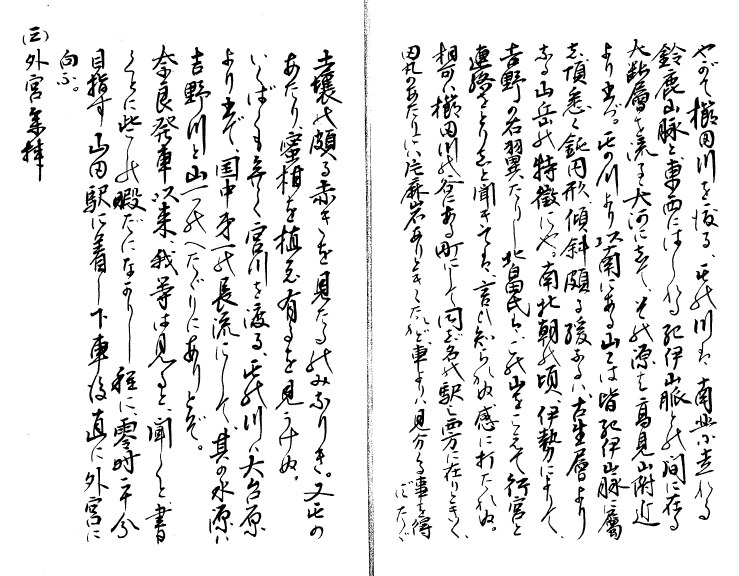 やがて櫛田川を渡る、此の川は、南北に走れる
鈴鹿山脈と東西にはしれる紀伊山脈との間に在る
大断層を流る大河にして、その源は高見山附近
より出づ。此の川より以南にある山々は皆紀伊山脈に属
し頂悉く鈍円形、傾斜頗る緩なるは、古生層より
なる山岳の特徴にや。南北朝の頃、伊勢によりて、
吉野の右翼たりし北畠氏が、此の山をこえて行宮と
連絡をとりしと聞きては、言ひ知られぬ感に打たれぬ。
相可は櫛田川の谷にある町にして同じ名の駅は西方に在りときく、
田丸のあたりには片麻岩ありときゝたれど、車よりは見分くる事を得
ざりき
土壌の頗る赤きを見たるのみなりき。又此の
あたり、蜜柑を植ゑ有るを見うけぬ。
いくばくも無く宮川を渡る、此の川は大台原
より出で、国中第一の長流にして、其の水源は
吉野川と山一つへだたりにありとぞ。
奈良発車以来、我等は見ると、聞くと、書
くとに些しの暇だになかりし程に、零時二十分
目指す山田駅に着し下車後直に外宮に
向ふ。
(三)外宮参拝